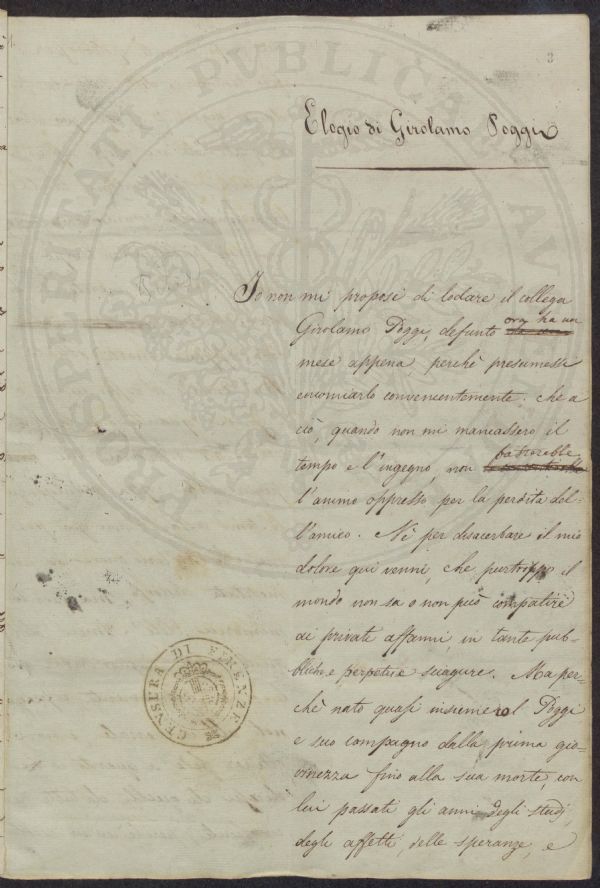 3
Elogio di Girolamo Poggi
Io non mi proposi di lodare il collega
Girolamo Poggi, defunto ora ha un
mese appena, perchè presumessi
encomiarlo convenientemente. che a
ciò, quando non mi mancassero il
tempo e l'ingegno, non basterebbe
l'animo oppresso per la perdita del-
l'amico. Nè per disacerbare il mio
dolore qui venni, che purtroppo il
mondo non sa o non può compatire
ai private affanni, in tante pub-
bliche e perpetue sciagure. Ma per-
chè nato quasi insieme col Poggi
e suo compagno dalla prima gio-
vinezza fino alla sua morte, con
lui passati gli anni degli studj
degli affetti, delle speranze, e
CENSURA DI FIRENZE